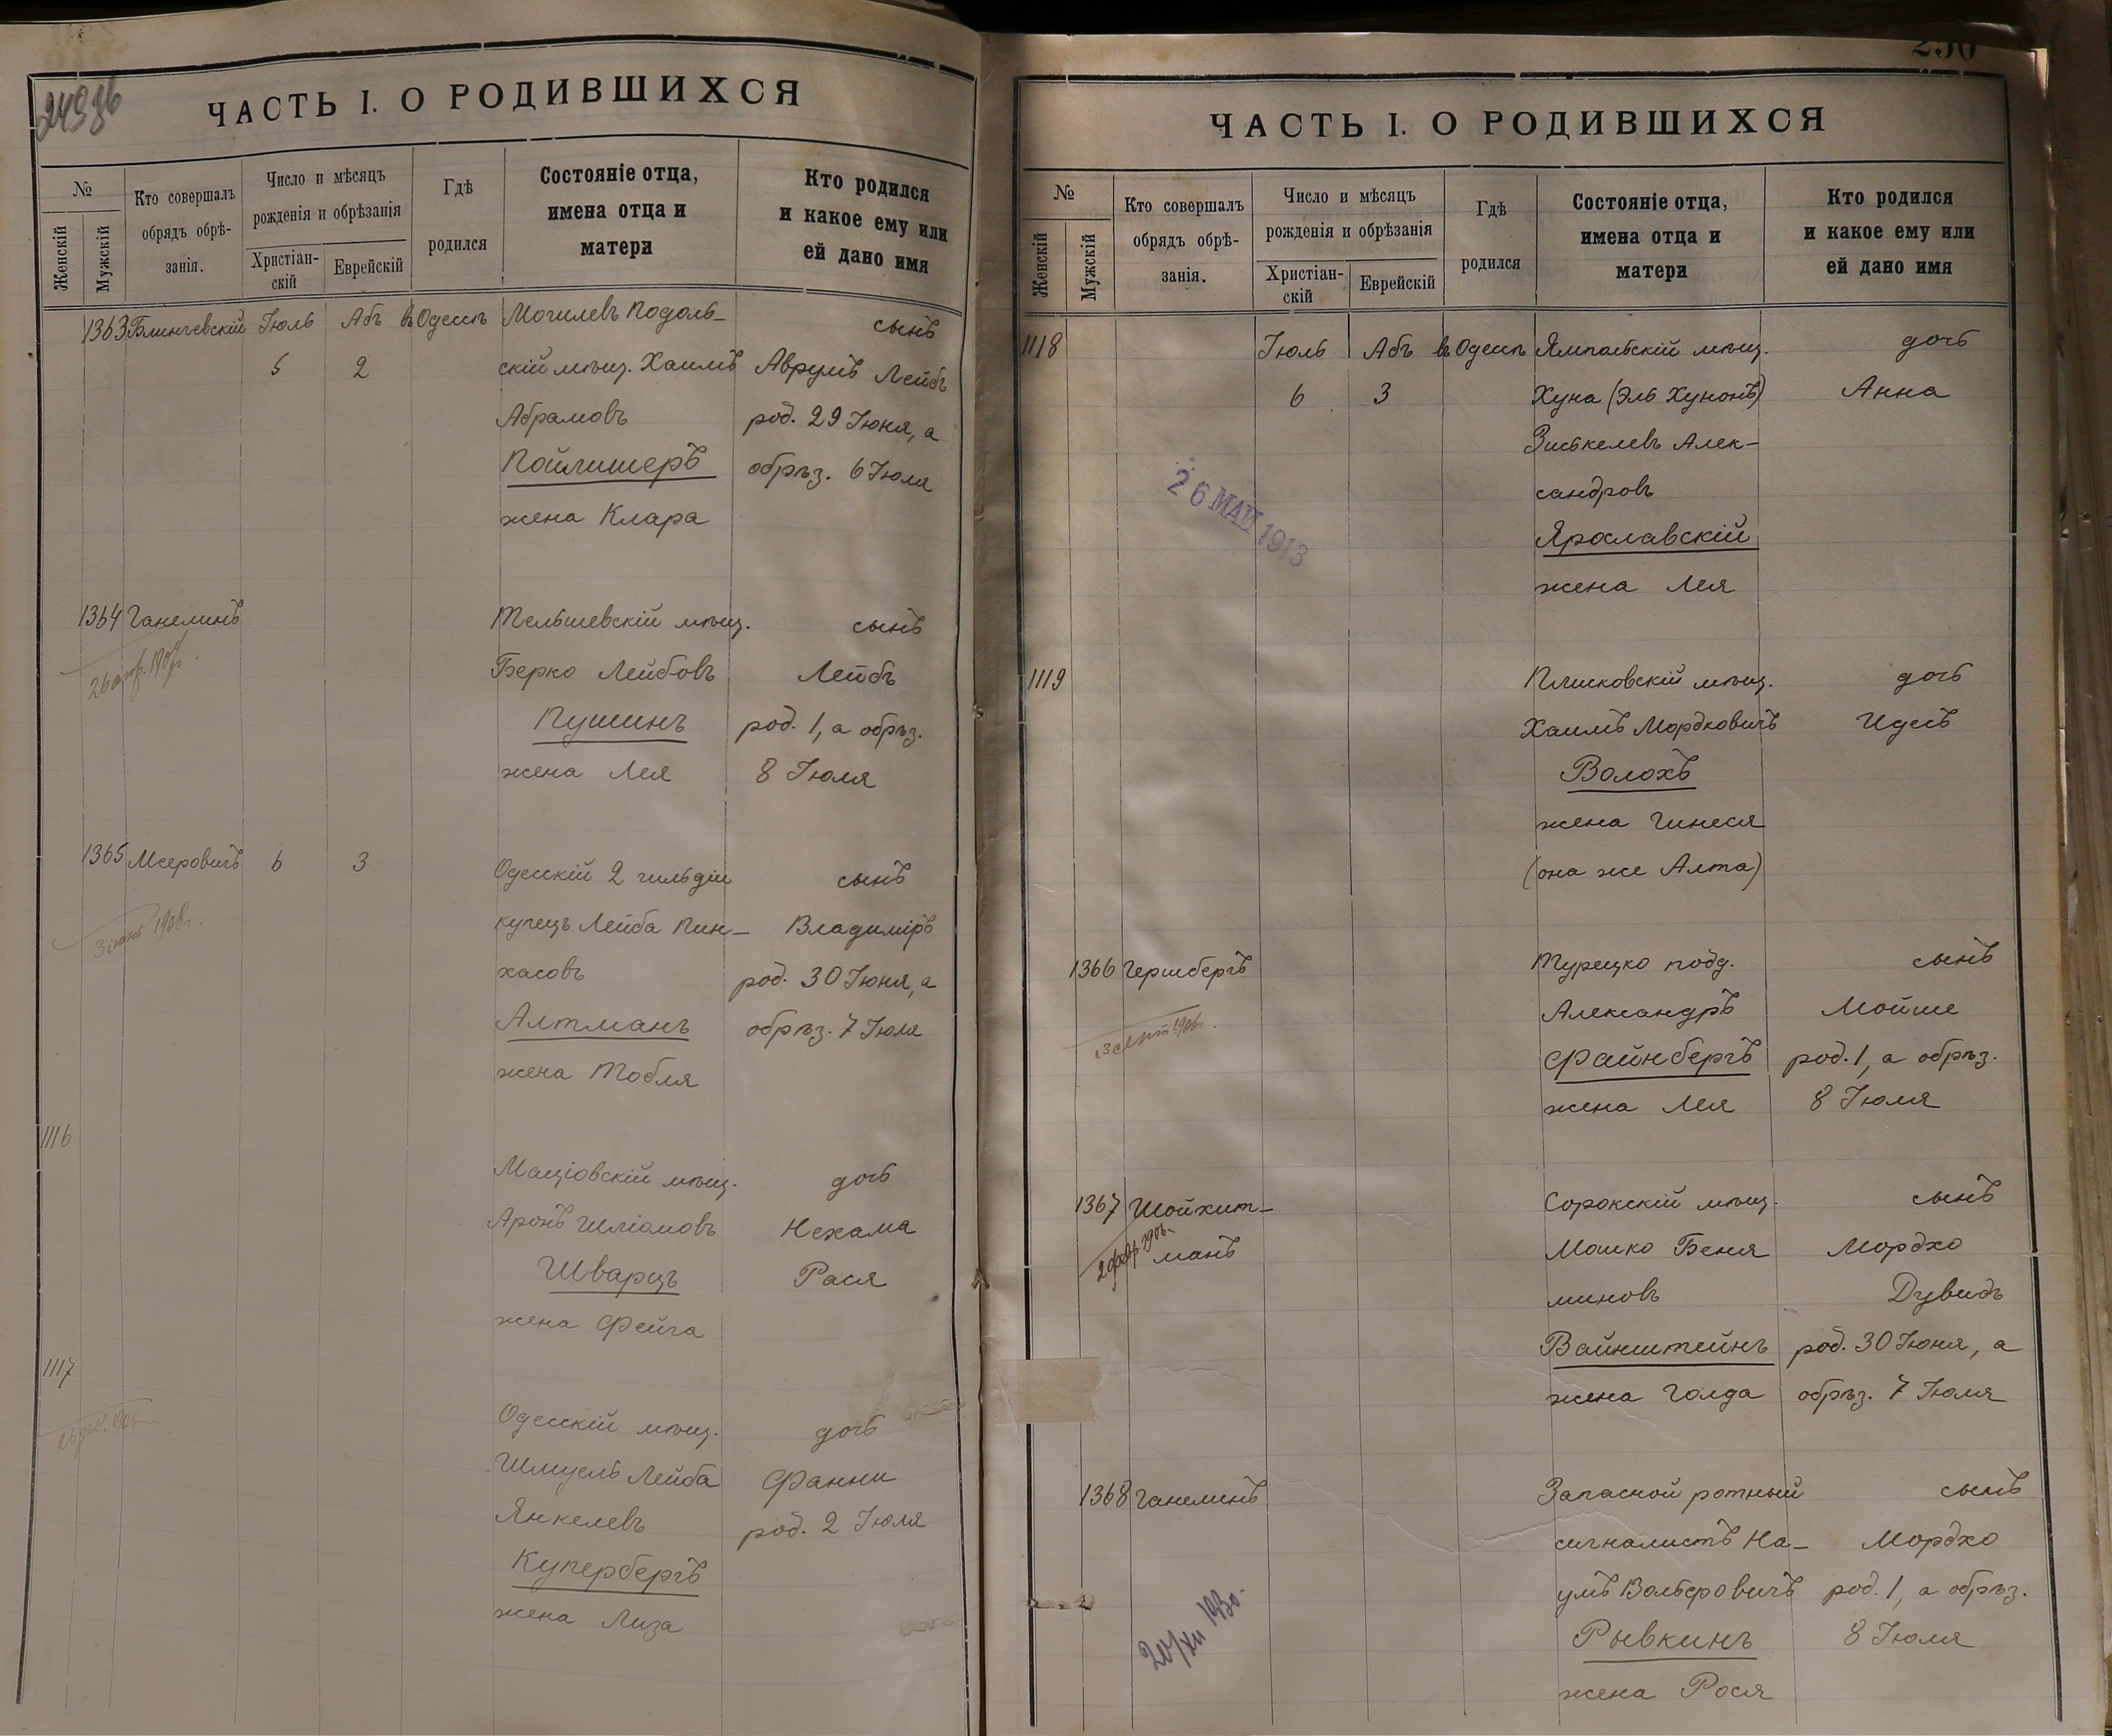 249об
ЧАСТЬ I. О РОДИВШИХСЯ
№
Женскій
Мужскій
Кто совершалъ
обрядъ обрѣ-
занія.
Число и мѣсяцъ
рожденія и обрѣзанія
Христіан-
скій
Еврейскій
Гдѣ
родился
Состояніе отца,
имена отца и
матери
Кто родился
и какое ему или
ей дано имя
1363 Блинчевскій Іюль Абъ въ Одессѣ Могилевъ Подоль- сынъ
5 2 скій мѣщ. Хаимъ Аврумъ Лейбъ
Абрамовъ род. 29 Іюня, а
Пойлишеръ обрѣз. 6 Іюля
жена Клара
1364 Ганелинъ Тельшевскій мѣщ. сынъ
Берко Лейбовъ Лейбъ
Пушинъ род. 1, а обрѣз.
жена Лея 8 Іюля
1365 Меровичъ 6 3 Одесскій 2 гильдіи сынъ
купецъ Лейба Пин- Владиміръ
хасовъ род. 30 Іюня, а
Алтманъ обрѣз. 7 Іюля
жена Тобля
1116
Маціовскій мѣщ. дочь
Аронъ Шліомовъ Нехама
Шварцъ Рася
жена Фейга
1117
Одесскій мѣщ. дочь
Шмуель Лейба Фанни
Янкелевъ род. 2 Іюля
Купербергъ
жена Лиза
250
ЧАСТЬ I. О РОДИВШИХСЯ
№
Женскій
Мужскій
Кто совершалъ
обрядъ обрѣ-
занія.
Число и мѣсяцъ
рожденія и обрѣзанія
Христіан-
скій
Еврейскій
Гдѣ
родился
Состояніе отца,
имена отца и
матери
Кто родился
и какое ему или
ей дано имя
1118 Іюль Абъ въ Одессѣ Ямпольскій мѣщ. дочь
6 3 Хуна (Эль Хунонъ) Анна
Зиськелевъ Алек-
сандровъ
26 МАЙ 1913
Ярославскій
жена Лея
1119 Плисковскій мѣщ. дочь
Хаимъ Мордковичъ Идесъ
Волохъ
жена Гинеся
(она же Алта)
1366 Гершбергъ Турецко подд. сынъ
Александръ Мойше
Файнбергъ род. 1, а обрѣз.
жена Лея 8 Іюля
1367 Шойхит- Сорокскій мѣщ. сынъ
манъ Мошко Беня Мордхо
миновъ Дувидъ
Вайнштейнъ род. 30 Іюня, а
жена Голда обрѣз. 7 Іюля
1368 Ганелинъ Запасной ротный сынъ
сигналистъ На- Мордхо
умъ Вольфовичъ род. 1, а обрѣз.
Рывкинъ 8 Іюля
жена Рося
20/XII 1930